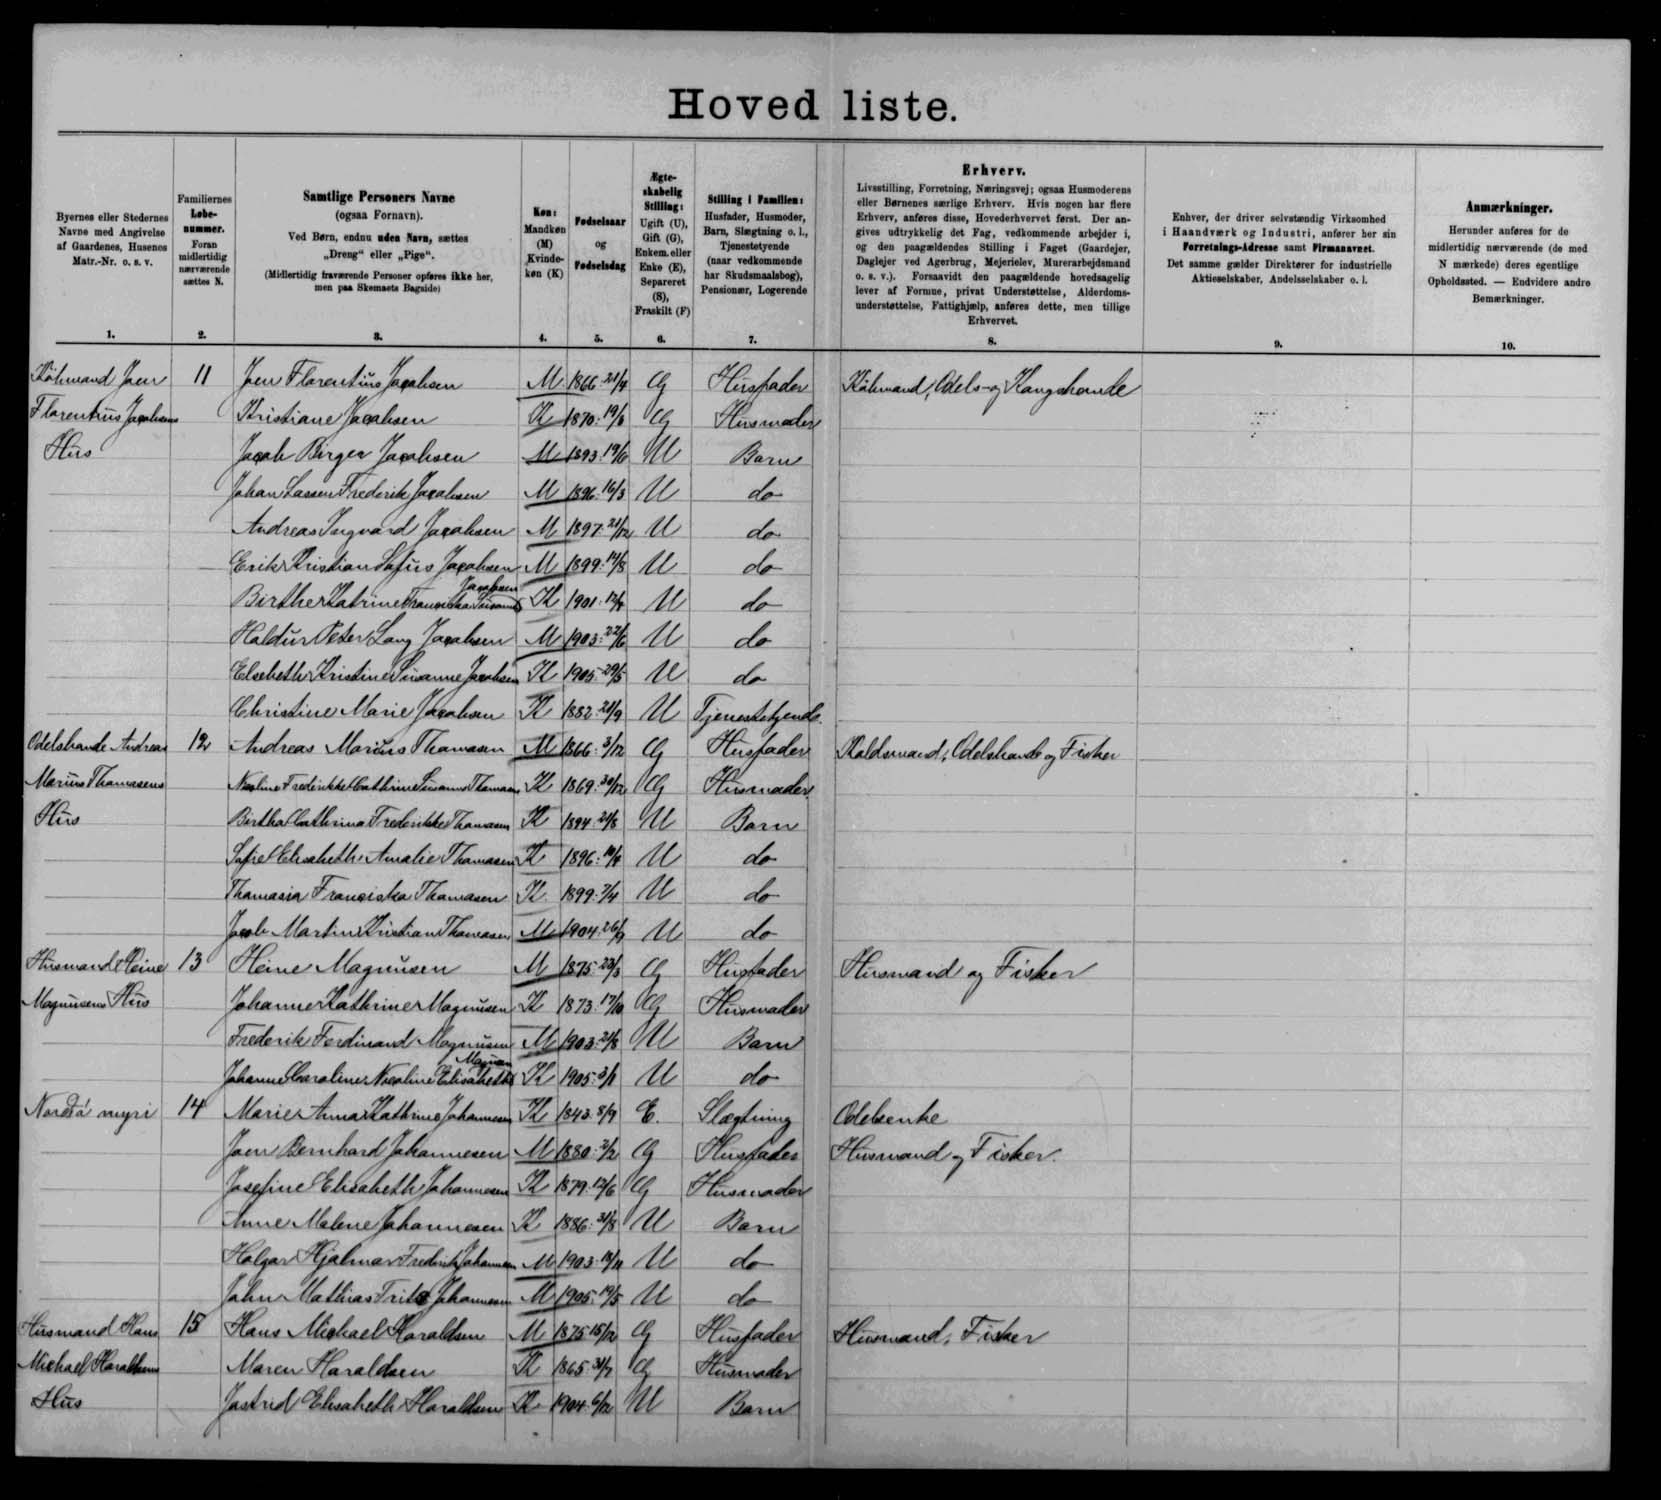 Hoved liste.
Byernes eller Stedernes
Navne med Angivelse
af Gaardenes, Husenes
Matr.-Nr. o. s. v.
1.
Familiernes
Løbe-
nummer.
Foran
midlertidig
nærværende
sættes N.
2.
Samtlige Personers Navne
(ogsaa Fornavn).
Ved Børn, endnu uden Navn, sættes
„Dreng“ eller „Pige“.
(Midlertidig fraværende Personer opføres ikke her,
men paa Skemaets Bagside)
3.
Køn:
Mandkøn
(M)
Kvinde-
køn (K)
4.
Fødselsaar
og
Fødselsdag
5.
Ægte-
skabelig
Stilling:
Ugift (U),
Gift (G),
Enkem. eller
Enke (E),
Separeret
(S),
Fraskilt (F)
6.
Stilling i Familien:
Husfader, Husmoder,
Barn, Slægtning o. l.,
Tjenestetyende
(naar vedkommende
har Skudsmaalsbog),
Pensionær, Logerende
7.
Erhverv.
Livsstilling, Forretning, Næringsvej; ogsaa Husmoderens
eller Børnenes særlige Erhverv. Hvis nogen har flere
Erhverv, anføres disse, Hovederhvervet først. Der an-
gives udtrykkelig det Fag, vedkommende arbejder i,
og den paagældendes Stilling i Faget (Gaardejer,
Daglejer ved Agerbrug, Mejerielev, Murerarbejdsmand
o. s. v.). Forsaavidt den paagældende hovedsagelig
lever af Formue, privat Understøttelse, Alderdoms-
understøttelse, Fattighjælp, anføres dette, men tillige
Erhvervet.
8.
Enhver, der driver selvstændig Virksomhed
i Haandværk og Industri, anfører her sin
Forretnings-Adresse samt Firmanavnet.
Det samme gælder Direktører for industrielle
Aktieselskaber, Andelsselskaber o. l.
9.
Anmærkninger.
Herunder anføres for de
midlertidig nærværende (de med
N mærkede) deres egentlige
Opholdssted. — Endvidere andre
Bemærkninger.
10.
Købmand Joen 11 Joen Florentius Jacobsen M 1866 21/4 G Husfader Købmand, Odels- og Kongsbonde
Florentius Jacobsens Kristiane Jacobsen K 1870 19/3 G Husmoder
Hus Jacob Birger Jacobsen M 1893 19/6 U Barn
Johan Lassen Frederik Jacobsen M 1896 16/3 U do
Andreas Ingvard Jacobsen M 1897 21/12 U do
Erik Kristian Sofus Jacobsen M 1899 14/8 U do
Jacobsen
Birthe Katrine Franciska Susanne K 1901 U do
Haldur Peter Lang Jacobsen M 1903 22/6 U do
Elsebeth Kristine Susanne Jacobsen K 1905 29/5 U do
Christine Marie Jacobsen K 1882 28/9 U Tjenestetyende.
Odelsbonde Andreas 12 Andreas Marius Thomasen M 1866 3/12 G Husfader Odelsbonde og Fisker
Marius Thomasens Nicoline Frederikke Cathrine Susanne Thomasen K 1869 30/12 G Husmoder
Hus Birtha Cathrina Frederikke Thomasen K 1894 21/8 U Barn
Sofie Elisabeth Amalie Thomasen K 1896 U do
Thomasia Franciska Thomasen K 1899 7/4 U do
Jacob Martin Kristian Thomasen M 1904 U do
Husmand Heine 13 Heine Magnusen M 1875 23/3 G Husfader Husmand og Fisker
Magnusens Hus Johanne Kathrine Magnusen K 1873 17/10 G Husmoder
Frederik Ferdinand Magnusen M 1903 21/8 U Barn
Magnusen
Johanne Caroline Nicoline Elisabeth K 1905 3/1 U do
Nordrá myri 14 Marie Anna Kathrine Johannesen K 1843 8/9 E. Slægtning Odelsenke
Joen Bernhard Johannesen M 1880 2/2 G Husfader Husmand og Fisker.
Josefine Elisabeth Johannesen K 1879 12/6 G Husmoder
Anne Malene Johannesen K 1886 31/8 U Barn
Holgar Hjalmar Frederik Johannesen M 1903 U do
John Mathias Fritz Johannesen M 1905 19/5 U do
Husmand Hans 15 Hans Michael Haraldsen M 1875 15/12 G Husfader Husmand, Fisker
Michael Haraldsens Maren Haraldsen K 1865 31/7 G Husmoder
Hus Jastrid Elisabeth Haraldsen K 1904 6/12 U Barn